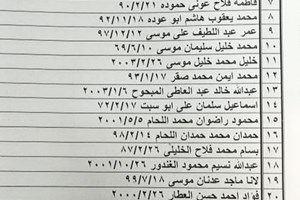 ٧ فاطمة فلاح عوني حموده ٩٠/٢/٢١
٨ محمد يعقوب هاشم ابو عوده ٩٢/١١/١٨
٩ عمر عبد اللطيف علي موسى ٩٧/١٢/١٢
١٠ محمد خليل سليمان موسى ٦٩/٦/١٠
١١ خليل محمد خليل موسى ٢٠٠٣/٢/٢٦
١٢ محمد ايمن محمد صقر ٩٣/١/١٧
١٣ عبدالله خالد عبدالعاطي المبحوح ٢٠٠٣/١/٦
١٤ اسماعيل سلمان علي ابو سبت ٧٢/٢/١٧
١٥ محمود راضوان محمد اللحام ٢٠٠١/٥/٥
١٦ حمدان محمد حمدان اللحام ٩٨/٢/١٤
١٧ بسام محمد فلاح الخليلي ٨٧/٢/٢٦
١٨ عبدالله نسيم محمود الغندور ٢٠٠١/١٠/٢٦
١٩ لانا ماجد عدنان موسى ٩٩/٧/١٨
٢٠ فؤاد احمد حسن العطار ٢٠٠٠/٢/٢٦